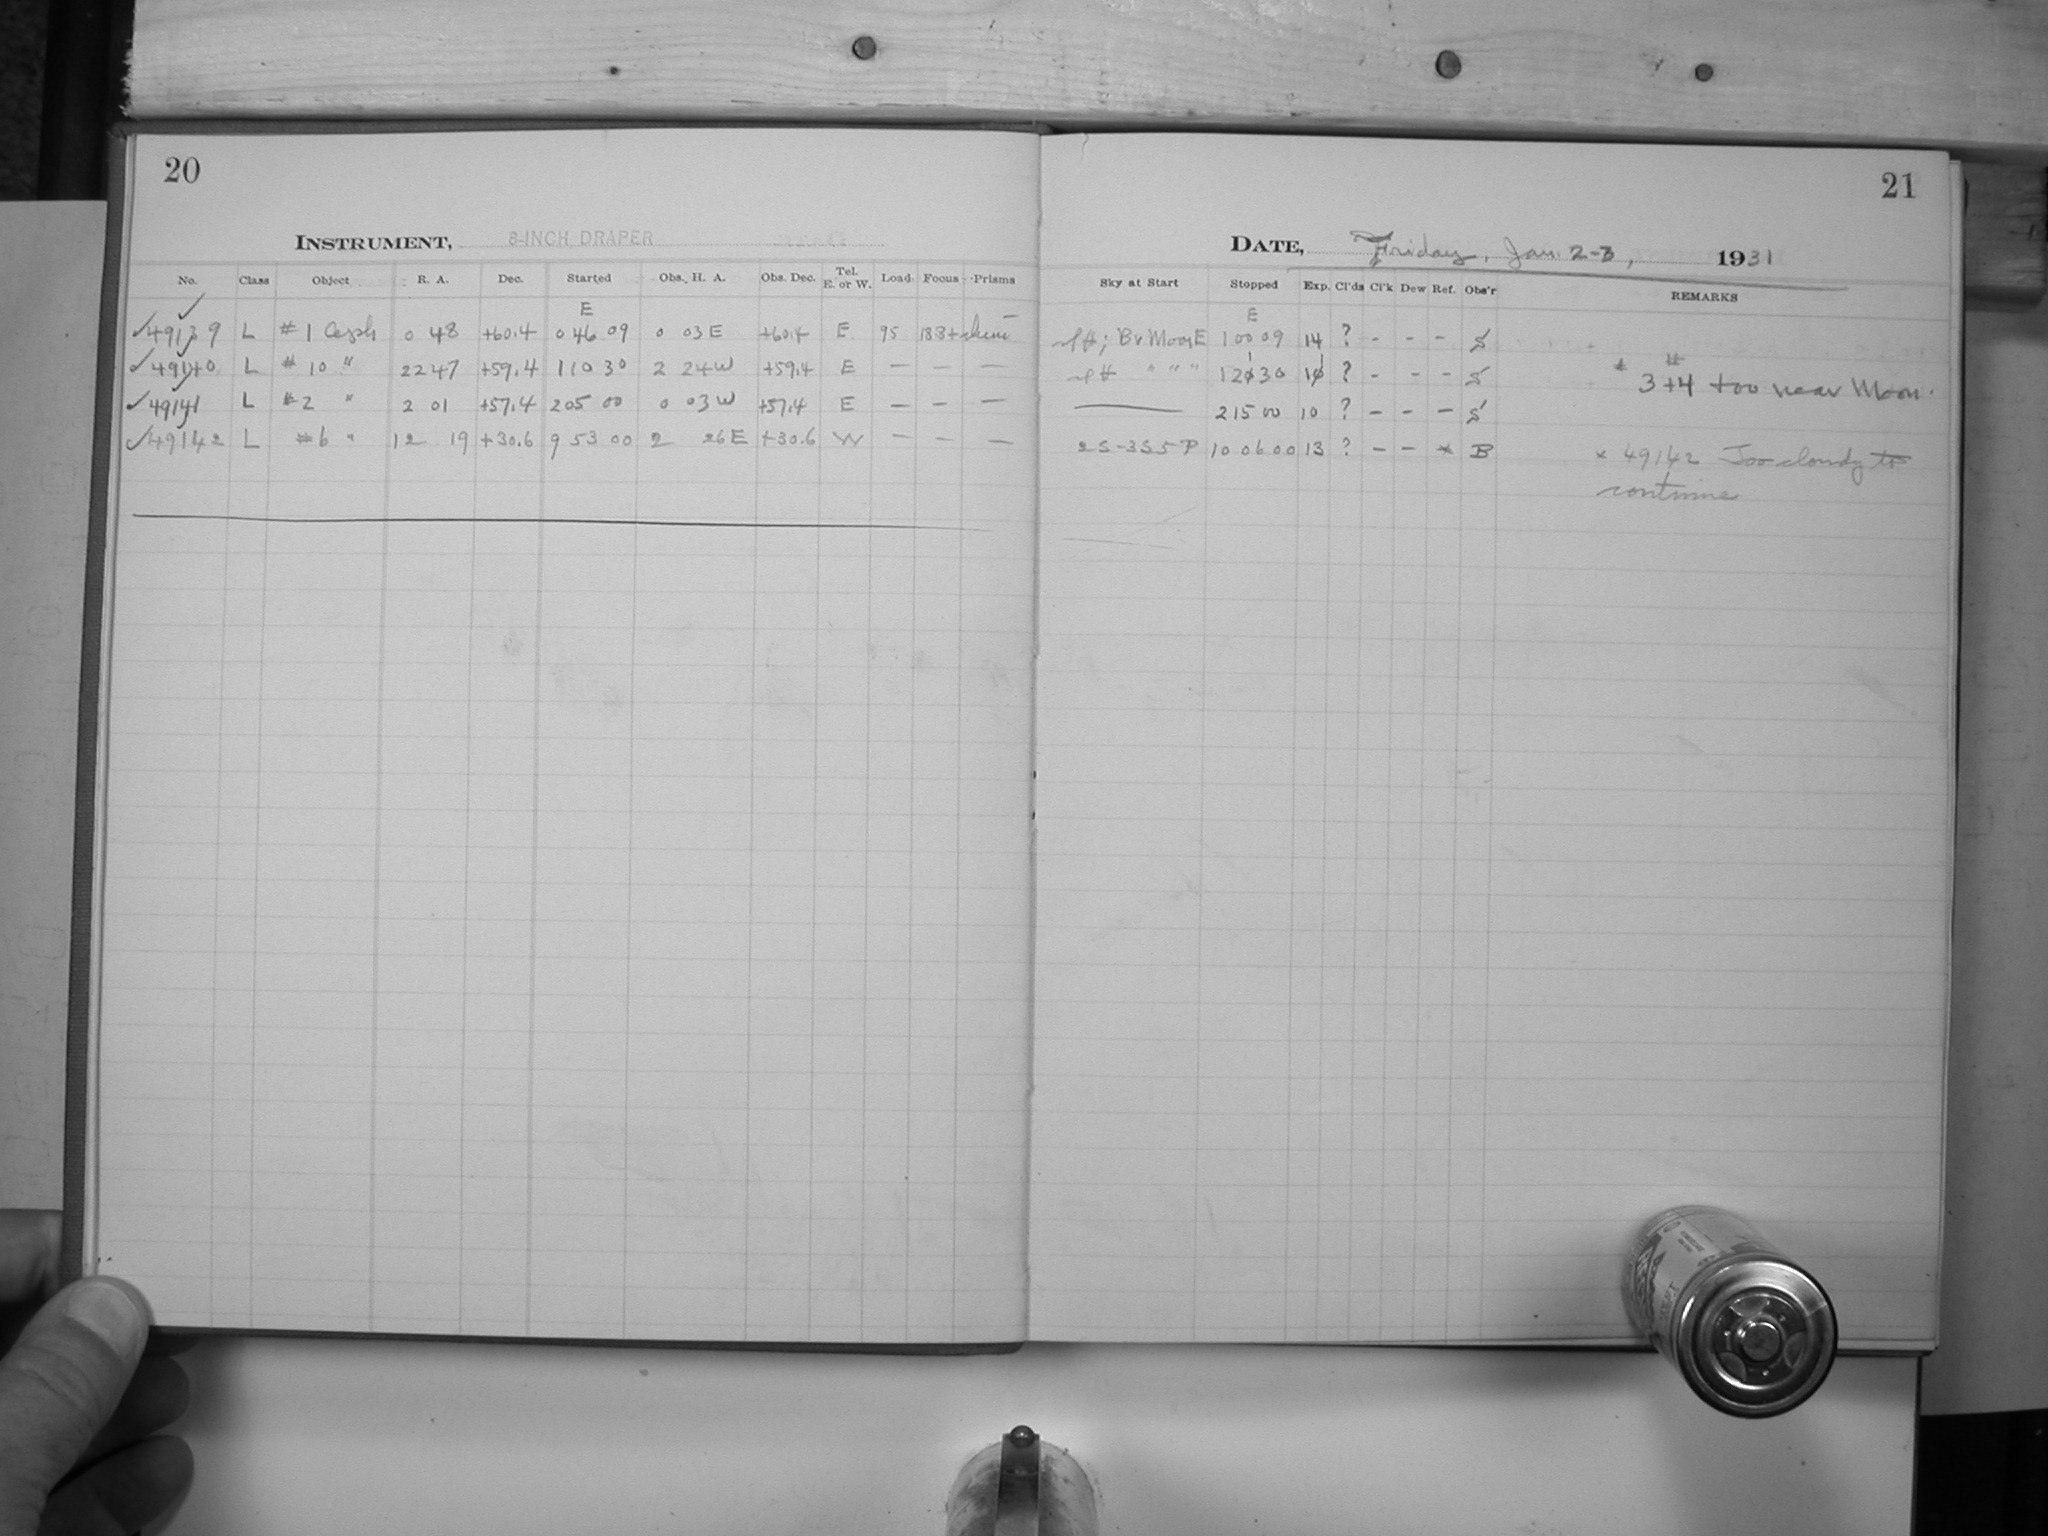 20
INSTRUMENT, 8-INCH DRAPER
No. Class Object R. A. Dec. Started Obs. H. A. Obs. Dec. Tel. E. or W. Load Focus Prisms
E
49139 L #1 Ceph 0 48 +60.4 0 46 09 0 03 E +60.4 E 95 188+
49140 L #10 " 22 47 +59.4 1 10 30 2 24 W +59.4 E — — —
49141 L #2 " 2 01 +57.4 2 05 00 0 03 W +57.4 E — — —
49142 L #6 " 12 19 +30.6 9 53 00 2 26 E +30.6 W — — —
21
DATE, Friday, Jan. 2-3, 1931
Sky at Start Stopped Exp. Cl'ds Cl'k Dew Ref. Obs'r REMARKS
E
Br Moon E 1 00 09 14 ? - - - S
" " " 1 21 30 11 ? - - - S
—— 2 15 00 10 ? - - - S
# 3+4 too near Moon.
2S-3S5P 10 06 00 13 ? - - * B
* 49142 Too cloudy to
continue